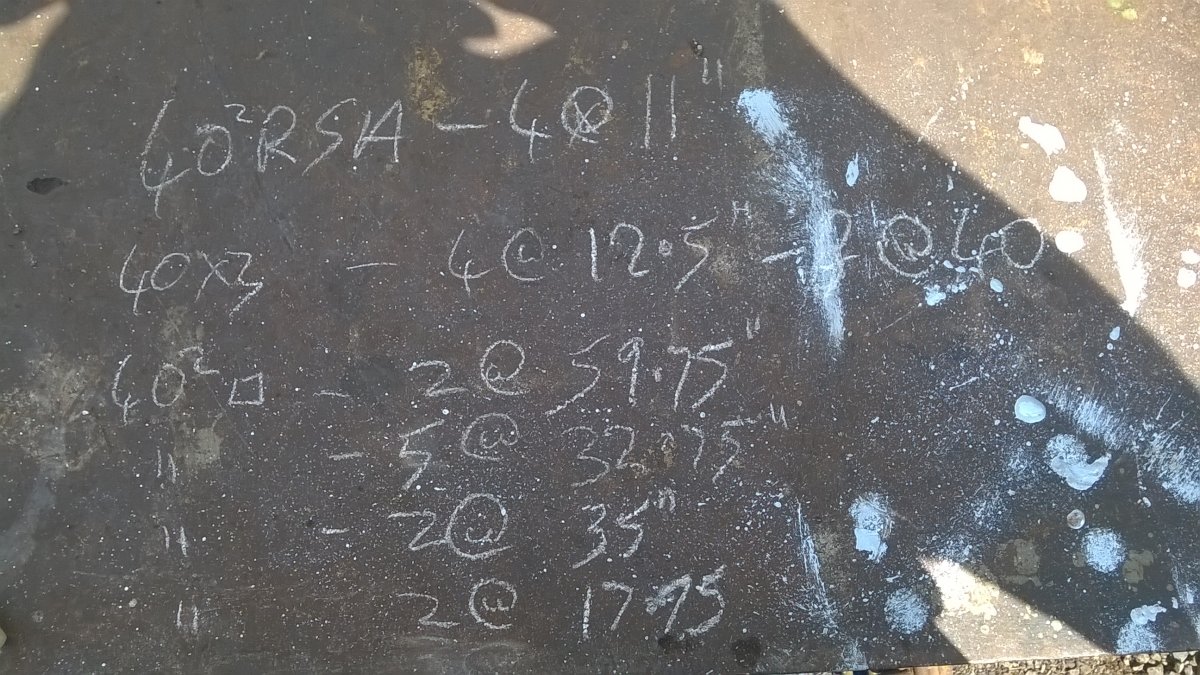 40²RSA - 4@ 11"
40x3 - 4@ 12.5" - 2@40
40²□ - 2@ 59.75"
" - 5@ 32.75"
" - 2@ 35"
" 2@ 17.75